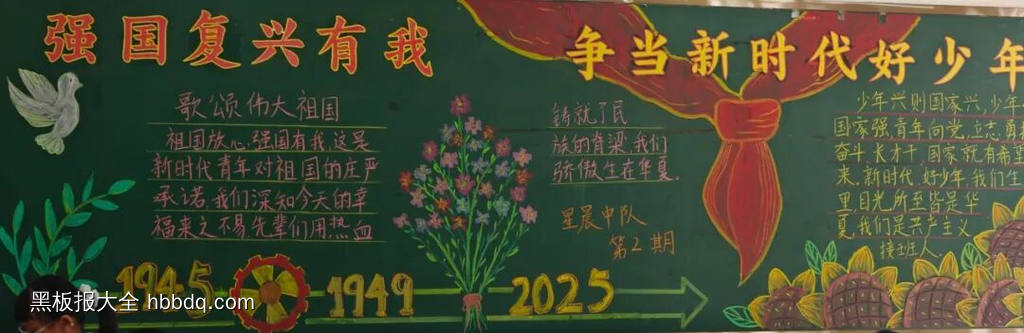 强国复兴有我
争当新时代好少年
歌颂伟大祖国
祖国放心,强国有我,这是
新时代青年对祖国的庄严
承诺,我们深知今天的幸
福来之不易,先辈们用热血
铸就了民
族的脊梁,我们
骄傲生在华夏.
星晨中队
第2期
少年兴则国家兴,少年
国家强,青年向党,立志,勇
奋斗,长才干,国家就有希望
来,新时代,好少年,我们生
里目光所至皆是华
夏,我们是共产主义
接班人
1945
1949
2025
黑板报大全 hbbdq.com